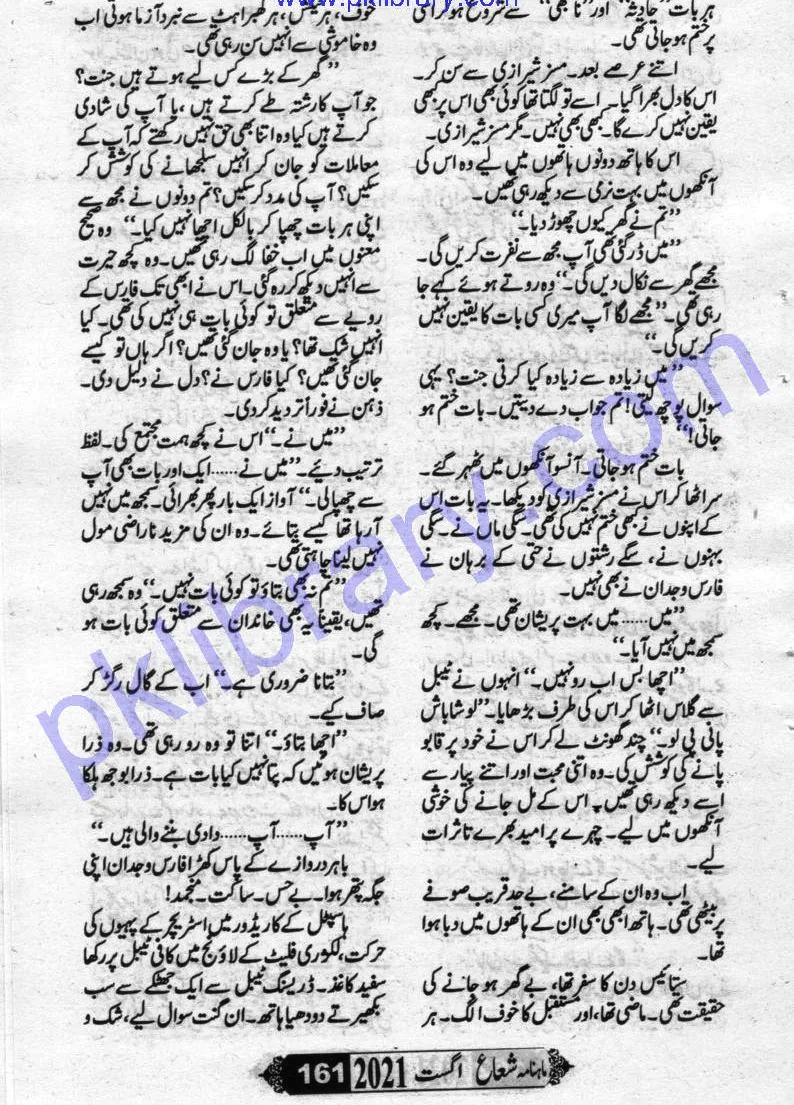 www.pklibrary.com
ہر بات ”حادثہ“ اور ”نا سمجھی“ سے شروع ہو کر اسی
پر ختم ہو جاتی تھی۔
اتنے عرصے بعد۔ مسز شیرازی سے سن کر۔
اس کا دل بھرا گیا۔ اسے تو لگتا تھا کوئی بھی اس پر بھی
یقین نہیں کرے گا۔ کبھی بھی نہیں۔ مگر مسز شیرازی۔
اس کا ہاتھ دونوں ہاتھوں میں لیے وہ اس کی
آنکھوں میں بہت نرمی سے دیکھ رہی تھیں۔
”تم نے گھر کیوں چھوڑ دیا۔“
”میں ڈر گئی تھی آپ مجھ سے نفرت کریں گی۔
مجھے گھر سے نکال دیں گی۔“ وہ روتے ہوئے کہے جا
رہی تھی۔ ”مجھے لگا آپ میری کسی بات کا یقین نہیں
کریں گی۔“
”میں زیادہ سے زیادہ کیا کرتی جنت؟ یہی
سوال پوچھ لیتی! تم جواب دے دیتیں۔ بات ختم ہو
جاتی!“
بات ختم ہو جاتی۔ آنسو آنکھوں میں ٹھہر گئے۔
سر اٹھا کر اس نے مسز شیرازی کو دیکھا۔ یہ بات اس
کے اپنوں نے کبھی ختم نہیں کی تھی۔ سگی ماں نے۔ سگی
بہنوں نے، سگے رشتوں نے حتی کے برہان نے
فارس وجدان نے بھی نہیں۔
”میں...... میں بہت پریشان تھی۔ مجھے۔ کچھ
سمجھ میں نہیں آیا۔“
”اچھا بس اب رو نہیں۔“ انہوں نے ٹیبل
سے گلاس اٹھا کر اس کی طرف بڑھایا۔ ”لو شاباش
پانی پی لو۔“ چند گھونٹ لے کر اس نے خود پر قابو
پانے کی کوشش کی۔ وہ اتنی محبت اور اتنے پیار سے
اسے دیکھ رہی تھیں۔ اس کے مل جانے کی خوشی
آنکھوں میں لیے۔ چہرے پر امید بھرے تاثرات
لیے۔
اب وہ ان کے سامنے، بے حد قریب صوفے
پر بیٹھی تھی۔ ہاتھ ابھی بھی ان کے ہاتھوں میں دبا ہوا
تھا۔
ستائیس دن کا سفر تھا، بے گھر ہو جانے کی
حقیقت تھی۔ ماضی تھا، اور مستقبل کا خوف الگ۔ ہر
خوف، ہر ہر گھبراہٹ سے نبرد آزما ہوتی اب
وہ خاموشی سے انہیں سن رہی تھی۔
”گھر کے بڑے کس لیے ہوتے ہیں جنت؟
جو آپ کا رشتہ طے کرتے ہیں، یا آپ کی شادی
کرتے ہیں کیا وہ اتنا بھی حق نہیں رکھتے کہ آپ کے
معاملات کو جان کر انہیں سلجھانے کی کوشش کر
سکیں؟ آپ کی مدد کر سکیں؟ تم دونوں نے مجھ سے
اپنی ہر بات چھپا کر بالکل اچھا نہیں کیا۔“ وہ صحیح
معنوں میں اب خفا لگ رہی تھیں۔ وہ کچھ حیرت
سے انہیں دیکھ کر رہ گئی۔ اس نے ابھی تک فارس کے
رویے سے متعلق تو کوئی بات ہی نہیں کی تھی۔ کیا
انہیں شک تھا؟ یا وہ جان گئی تھیں؟ اگر ہاں تو کیسے
جان گئی تھیں؟ کیا فارس نے؟ دل نے دلیل دی۔
ذہن نے فوراً تردید کر دی۔
”میں نے۔“ اس نے کچھ ہمت مجتمع کی۔ لفظ
ترتیب دیئے۔ ”میں نے...... ایک اور بات بھی آپ
سے چھپا لی۔“ آواز ایک بار پھر بھرائی۔ سمجھ میں نہیں
آ رہا تھا کیسے بتائے۔ وہ ان کی مزید ناراضی مول
نہیں لینا چاہتی تھی۔
”تم نہ بھی بتاؤ تو کوئی بات نہیں۔“ وہ سمجھ رہی
تھیں، یقیناً یہ بھی خاندان سے متعلق کوئی بات ہو
گی۔
”بتانا ضروری ہے۔“ اب کے گال رگڑ کر
صاف کیے۔
”اچھا بتاؤ۔“ اتنا تو وہ رو رہی تھی۔ وہ ذرا
پریشان ہوئیں کہ پتا نہیں کیا بات ہے۔ ذرا بوجھ ہلکا
ہو اس کا۔
”آپ..... آپ...... دادی بننے والی ہیں۔“
باہر دروازے کے پاس کھڑا فارس وجدان اپنی
جگہ پتھر ہوا۔ بے حس۔ ساکت۔ منجمد!
ہاسپٹل کے کاریڈور میں اسٹریچر کے پہیوں کی
حرکت، لگژری فلیٹ کے لاؤنج میں کافی ٹیبل پر رکھا
سفید کاغذ۔ ڈریسنگ ٹیبل سے ایک جھٹکے سے سب
بکھیرتے دودھیا ہاتھ۔ ان گنت سوال لیے، شک و
pklibrary.com
ماہنامہ شعاع اگست 2021 161